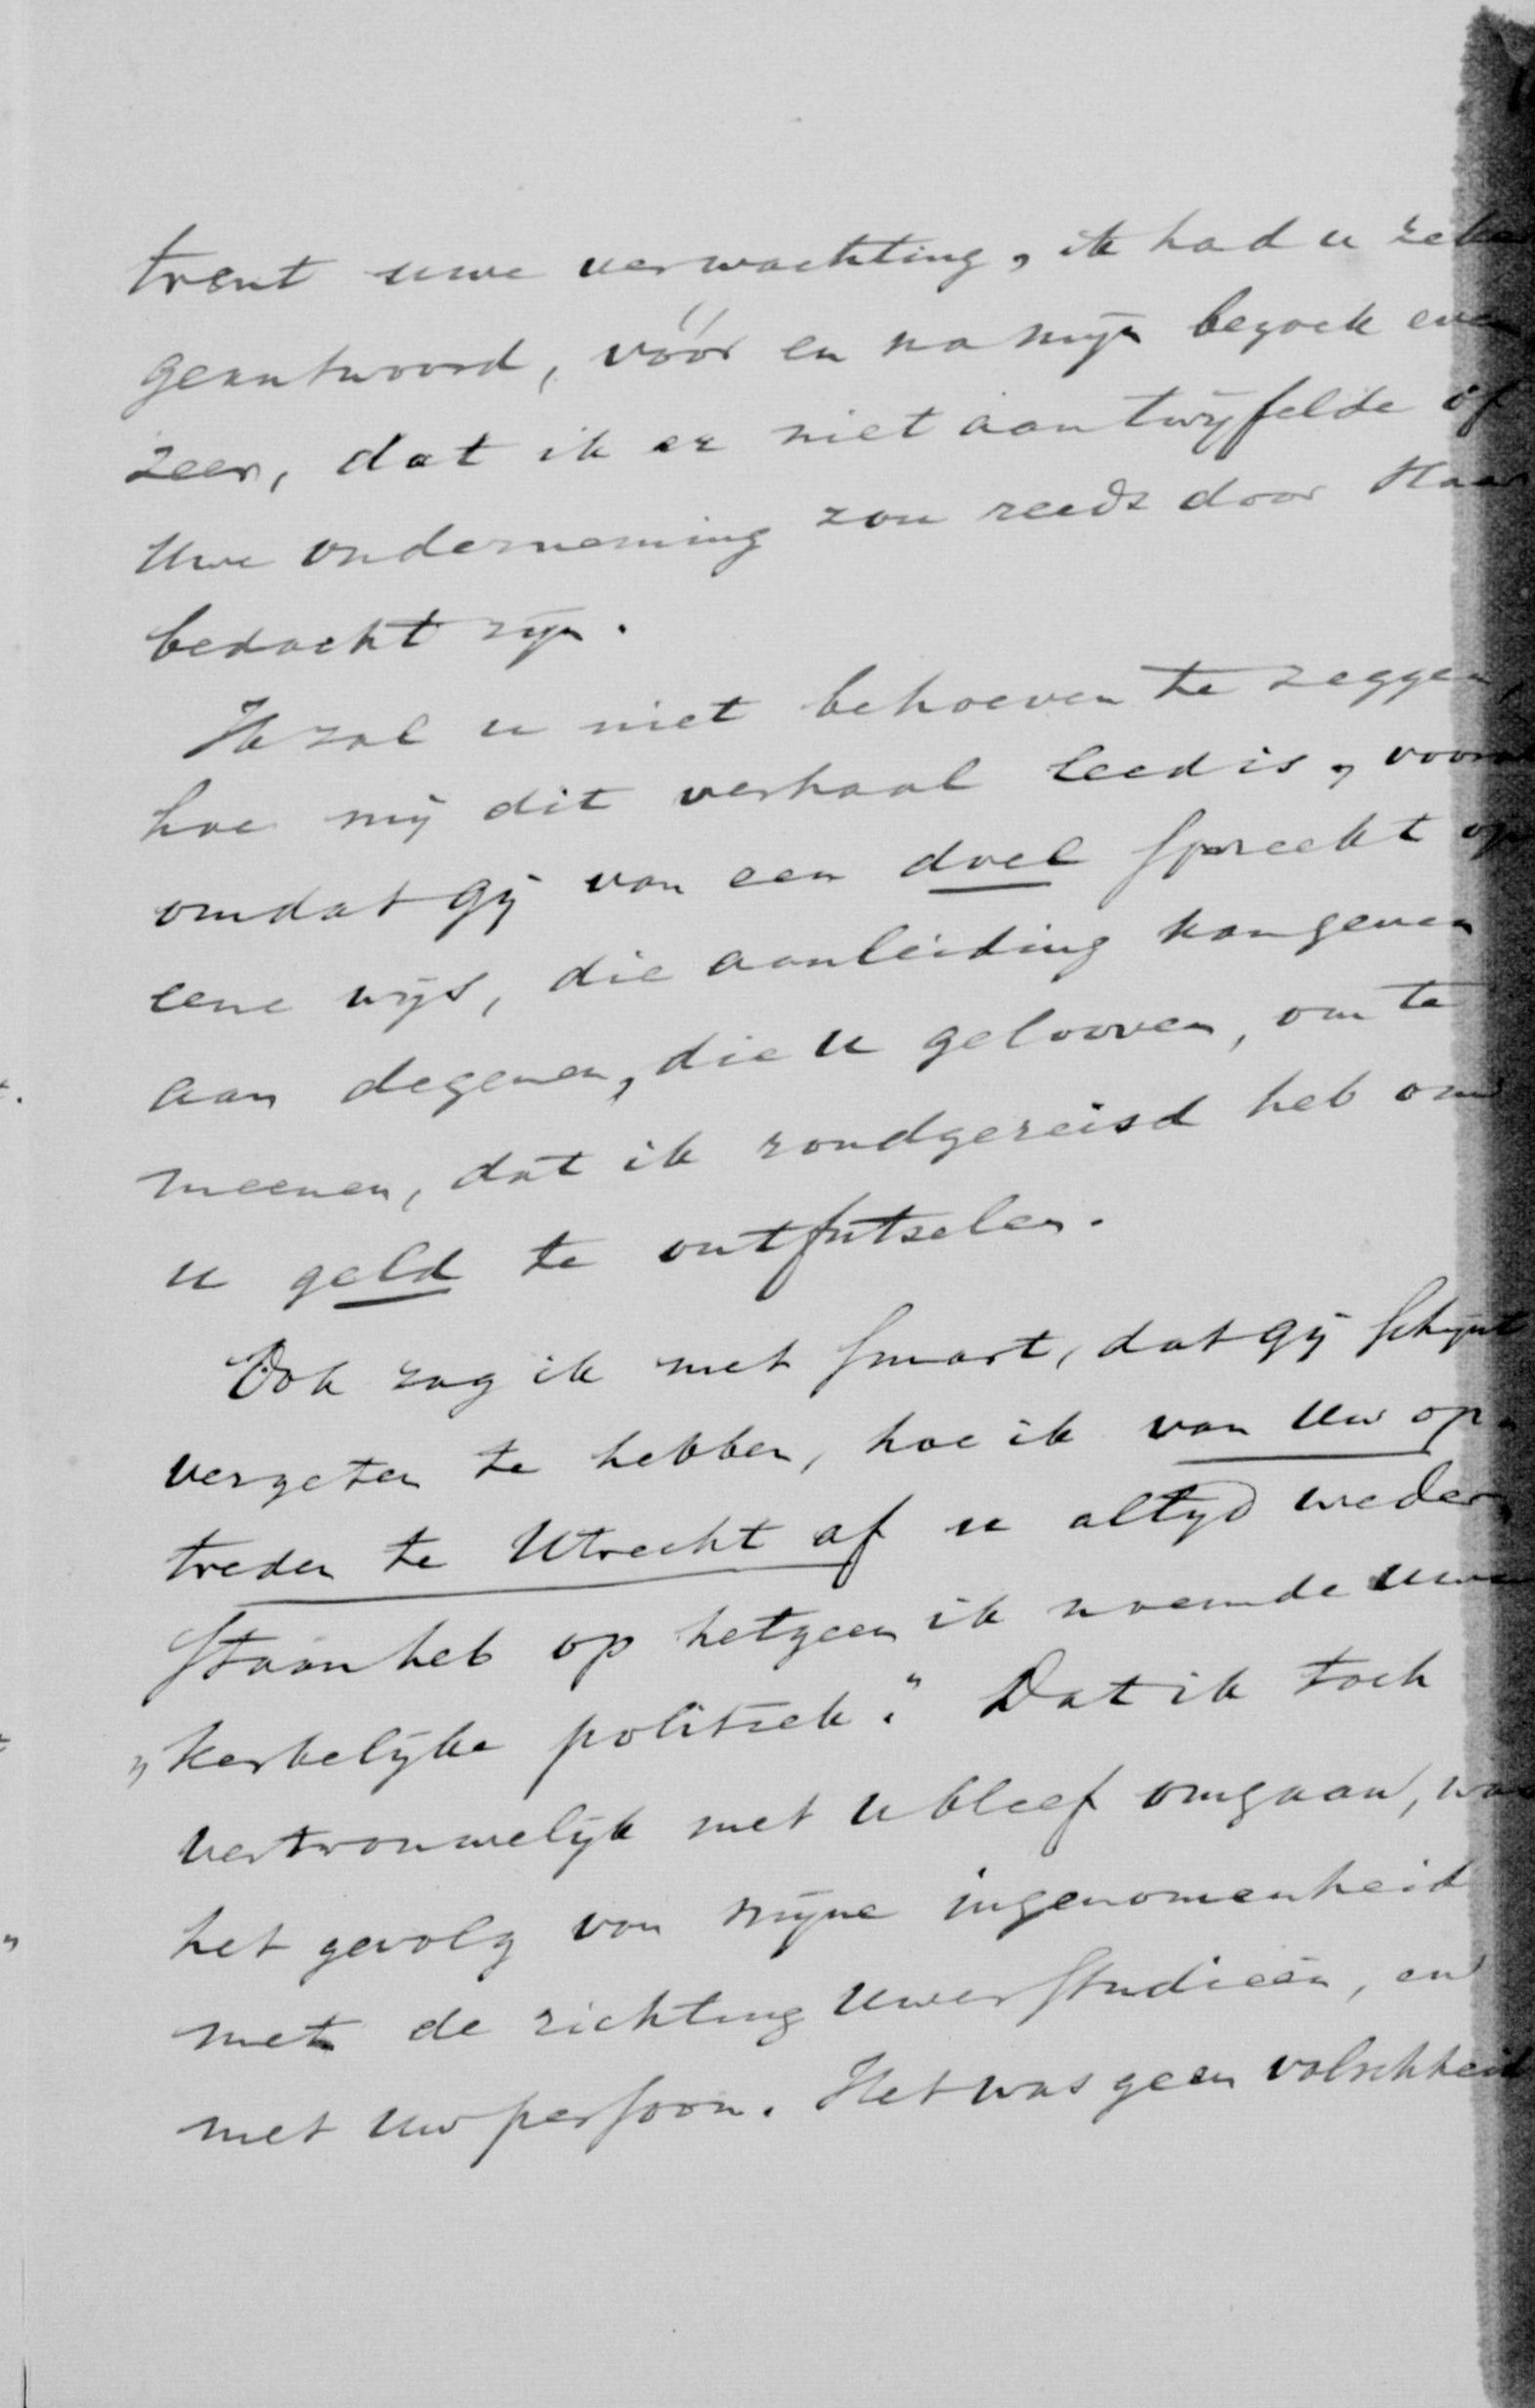 trent uwe verwachting, ik had u zeker
geantwoord, vóór en na mijn bezoek even
zeer, dat ik er niet aan twijfelde óf
Uwe onderneming zou reeds door Haar
bedacht zijn.
Ik zal u niet behoeven te zeggen,
hoe mij dit verhaal leed is, vooral
omdat gij van een doel spreekt op
eene wijs, die aanleiding kan geven
aan degenen, die u gelooven, om te
meenen, dat ik rondgereisd heb om
u geld te ontfutselen.
Ook zag ik met smart, dat gij schijnt
vergeten te hebben, hoe ik van Uw op-
treden te Utrecht af u altijd weder-
staan heb op hetgeen ik noemde uwe
„kerkelijke politiek." Dat ik toch
vertrouwelijk met u bleef omgaan, was
het gevolg van mijne ingenomenheid
met de richting Uwer studieën, en
met uw persoon. Het was geen valschheid